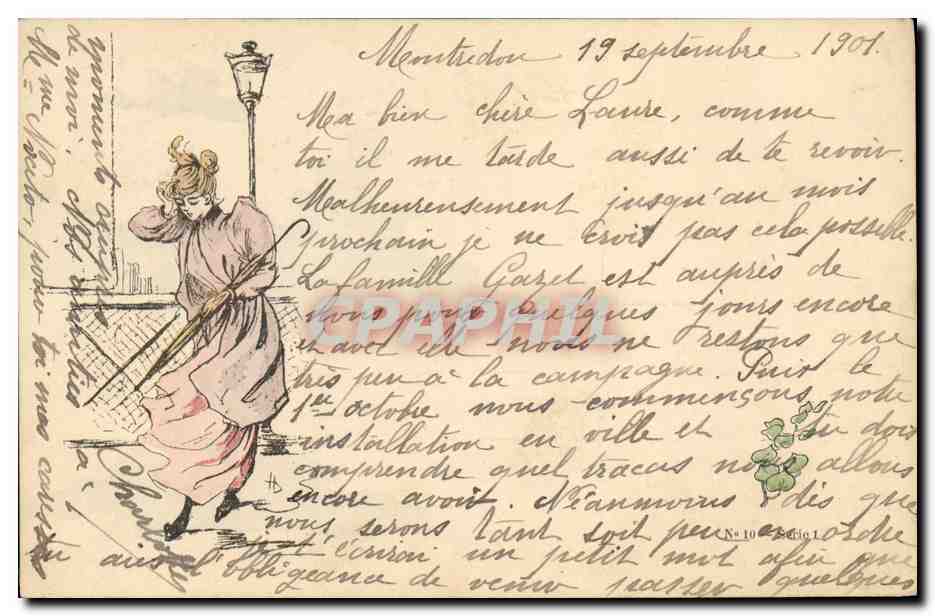 Montredon 19 septembre 1901.
Ma bien chère Laure, comme
toi il me tarde aussi de te revoir.
Malheureusement jusqu'au mois
prochain je ne crois pas cela possible.
La famille Gazet est auprès de
nous pour quelques jours encore
et avec elle nous ne restons que
très peu à la campagne. Puis le
1er octobre nous commençons notre
installation en ville et tu dois
comprendre quel tracas nous allons
encore avoir. Néanmoins, dès que
nous serons tant soit peu en ordre
je t'écrirai un petit mot afin que
tu aies l'obligeance de venir passer quelques
moments auprès
de moi. Nos amitiés à
Mme pour toi mes caresses
Charlotte
HB
No 10 Série 1
CPAPHIL